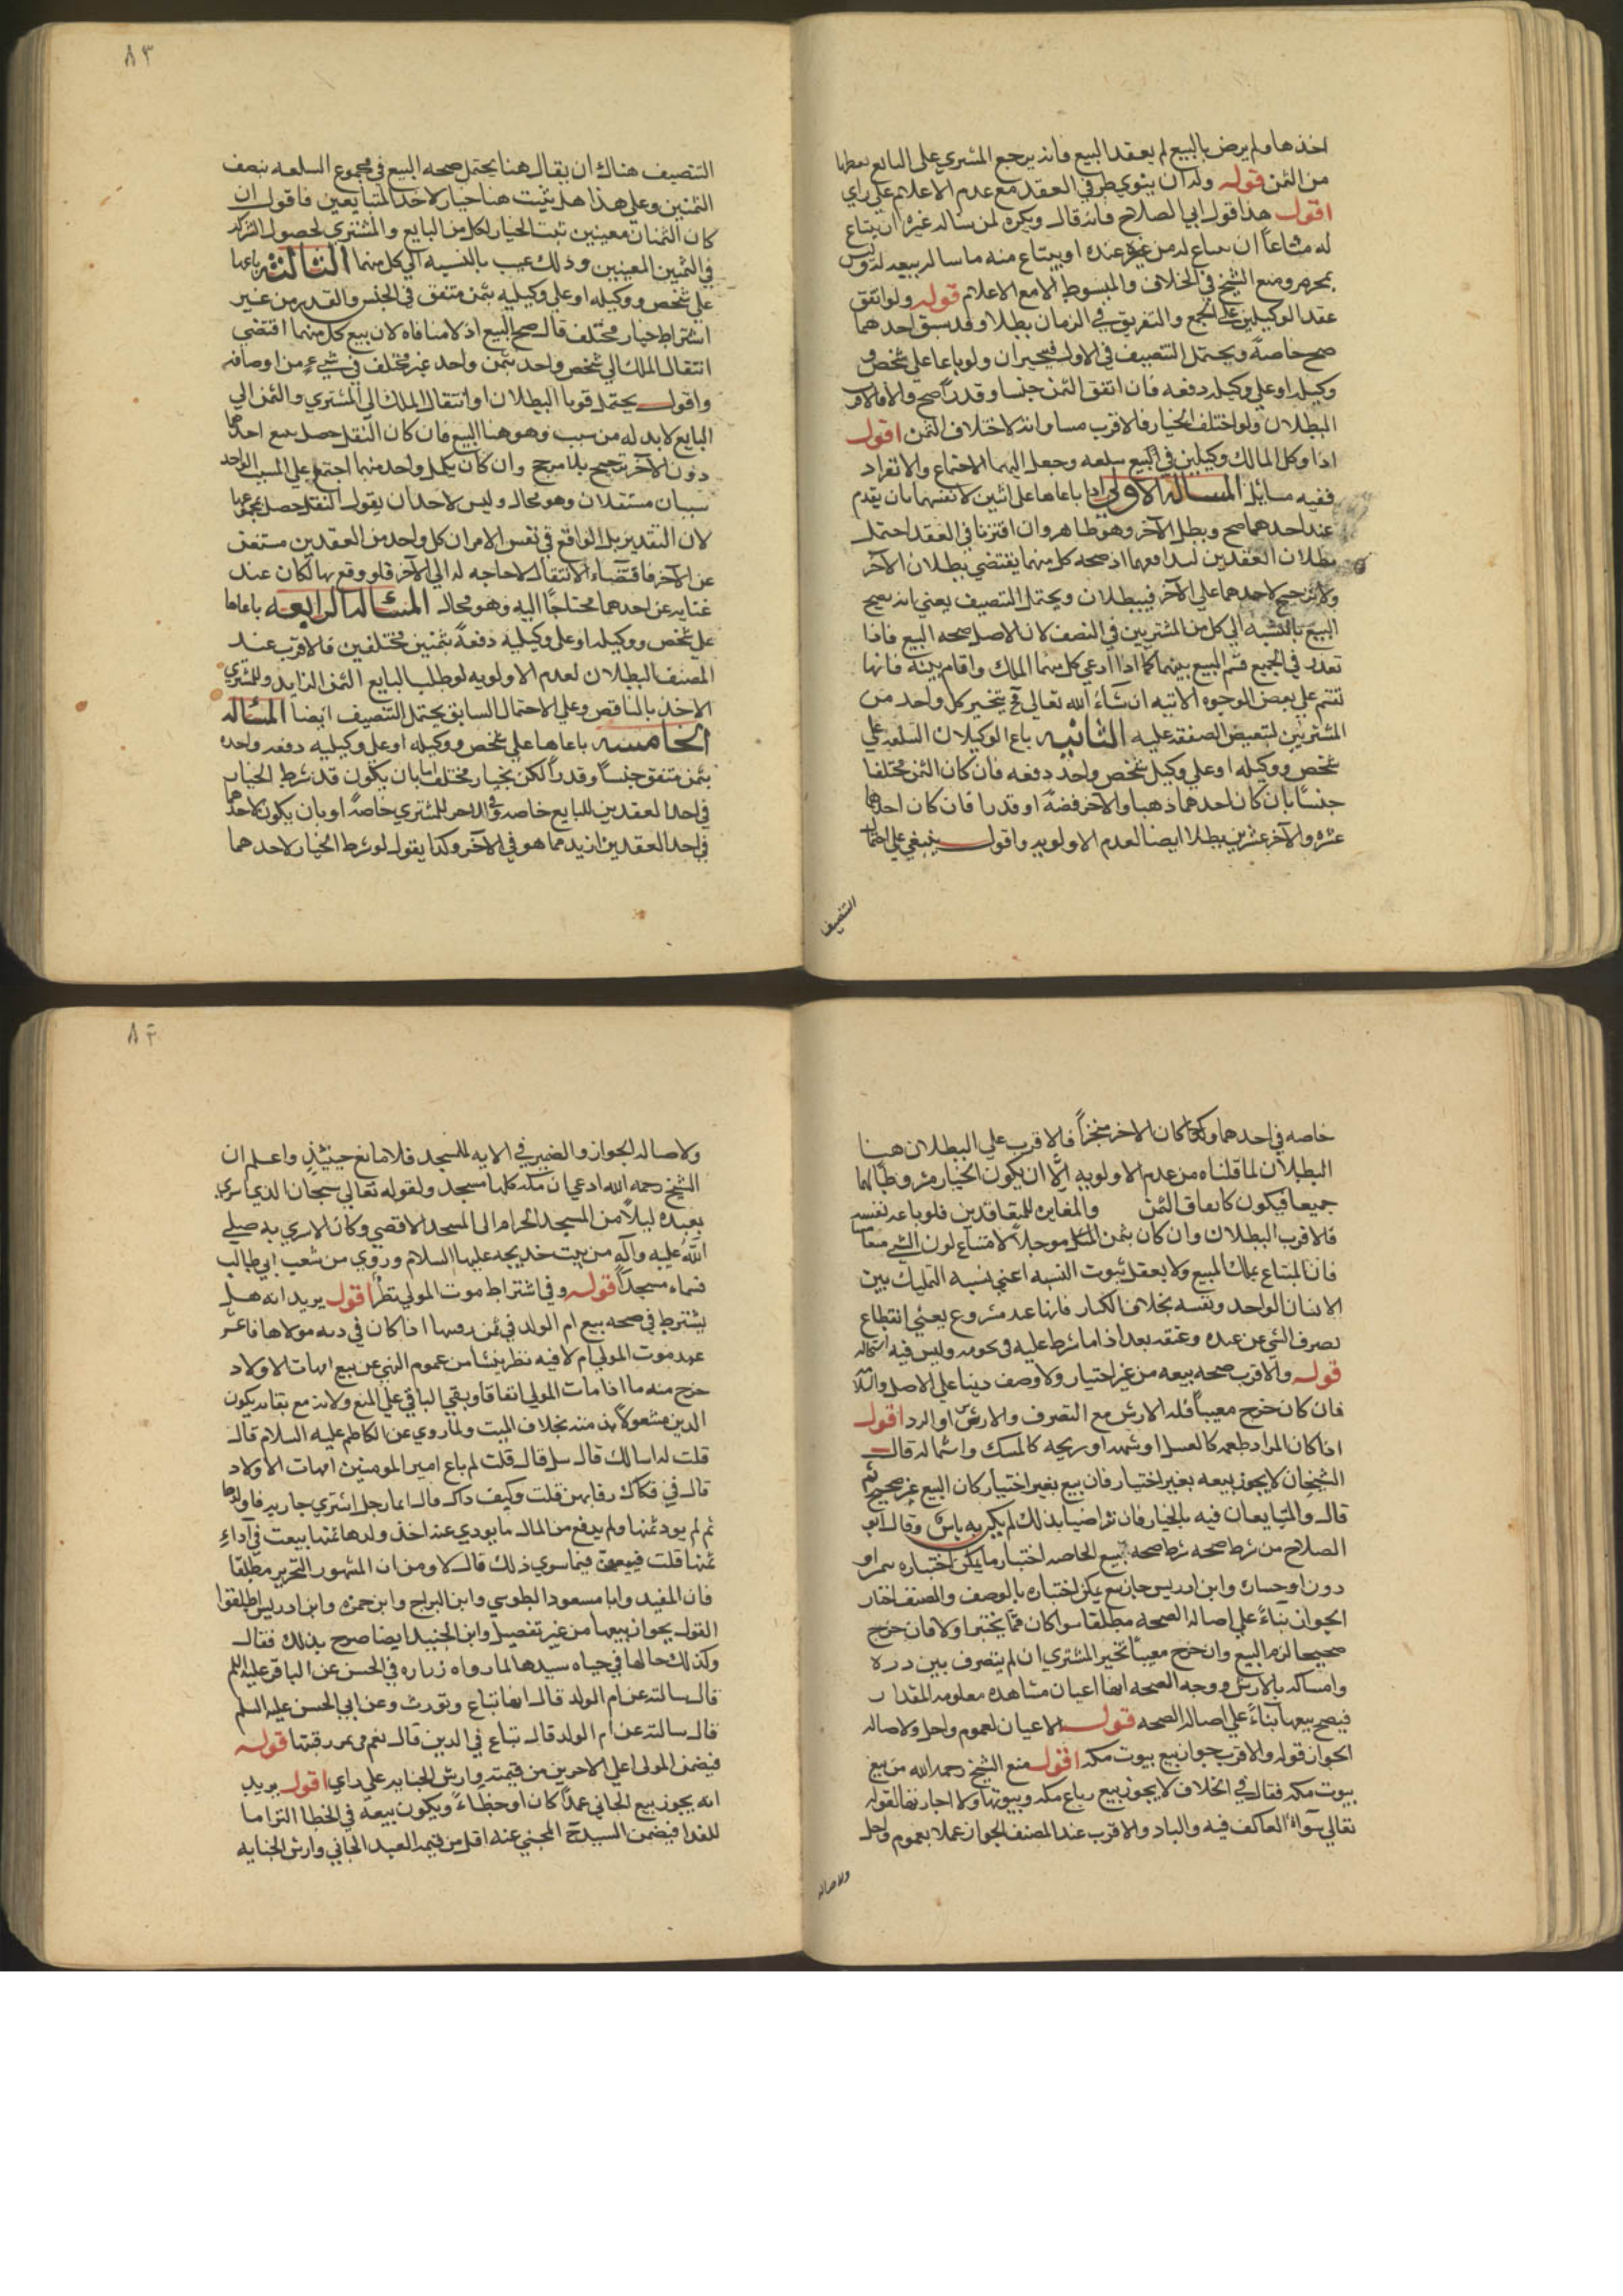 اخذها ولم يرض بالبيع لم يعقد البيع فانه يرجع المشتري علي البايع
من الثمن قوله وله ان ينوي طرفي العقد مع عدم الاعلام علي راي
اقول هذا قول ابي الصلاح فانه قال ويكره لمن ساله غيره ان يبتاع
له متاعا ان له من غيره عنده او يبتاع منه ما سال بيعه له وليس
بمحرم ومنع الشيخ في الخلاف والمبسوط الا مع الاعلام قوله ولو اتفق
عقد الوكيلين علي الجمع والتفريق في الزمان بطلا وقد سبق احدهما
صح خاصة ويحتمل التنصيف في الاول فيتخيران ولو باعا علي شخص و
وكيله او علي وكيله دفعه فان اتفق الثمن جنسا وقدرا صح والا فالاقرب
البطلان ولو اختلف الخيار فالاقرب مساواته لاختلاف الثمن اقول
اذا وكل المالك وكيلين في البيع سلعه وجعل اليهما الاجتماع والانفراد
ففيه مسايل المساله الاولي اذا باعاها علي اثنين لانفسهما بان يقدم
عقد احدهما صح وبطل الآخر وهو ظاهر وان اقترنا في العقد احتمل
بطلان العقدين لتدافعهما اذ صحه كل منهما يقتضي بطلان الآخر
ولا ترجيح لاحدهما علي الآخر فيبطلان ويحتمل التنصيف يعني انه يصح
البيع بالنسبه الي كل من المشتريين في النصف لان الاصل صحه البيع فاذا
تعذر في الجميع قسم المبيع بينهما كما اذا ادعي كل منهما الملك واقام بينه فانها
تقسم علي بعض الوجوه الاتيه ان شاء الله تعالي فح يتخير كل واحد من
المشتريين لتبعيض الصفقه عليه الثانيه باع الوكيلان السلعه علي
شخص ووكيله او علي وكيل شخص واحد دفعه فان كان الثمن مختلفا
جنسا بان كان احدهما ذهبا والآخر فضة او قدرا فان كان احدهما
عشره والآخر عشرين بطلا ايضا لعدم الاولويه واقول ينبغي علي احتمال
التنصيف
٨٣
التنصيف هناك ان يقال هنا يحتمل صحه البيع في مجموع السلعه بنصف
الثمنين وعلي هذا هل يثبت هنا خيار لاحد المتبايعين فاقول ان
كان الثمنان معينين ثبت الخيار لكل من البايع والمشتري لحصول الشركه
في الثمين المعينين وذلك عيب بالنسبه الي كل منهما الثالثه باعها
علي شخص ووكيله او علي وكيليه بثمن متفق في الجنس والقدر من غير
اشتراط خيار مختلف قال صح البيع اذ لا منافاه لان بيع كل منهما اقتضي
انتقال الملك الي شخص واحد بثمن واحد غير مختلف في شيء من اوصافه
واقول يحتمل قويا البطلان اوانتقال الملك الي المشتري والثمن الي
البايع لابد له من سبب وهو هنا البيع فان كان النقل حصل ببيع احدهما
دون الآخر ترجيح بلا مرجح وان كان بكل واحد منهما اجتمع علي المسبب الواحد
سببان مستقلان وهو محال وليس لاحد ان يقول النقل حصل بمجموعهما
لان التقدير بل الواقع في نفس الامر ان كل واحد من العقدين مستغن
عن الآخر فاقتضاء الانتقال لا حاجه له الي الآخر فلو وقع بها لكان عند
غنايه عن احدهما محتاجا اليه وهو محال المساله الرابعه باعاها
علي شخص ووكيله او علي وكيليه دفعة بثمنين مختلفين فالاقرب عند
المصنف البطلان لعدم الاولويه لو طلب البايع الثمن الزايد والمشتري
الاخذ بالناقص وعلي الاحتمال السابق يحتمل التنصيف ايضا المساله
الخامسه باعاها علي شخص ووكيله او علي وكيليه دفعه واحده
بثمن متفق جنسا وقدرا لكن بخيار مختلف اما بان يكون قد شرط الخيار
في احد العقدين للبايع خاصه وفي الاخر للمشتري خاصة او بان يكون لاحدهما
في احد العقدين ازيد مما هو في الآخر وكذا يقول لو شرط الخيار لاحدهما
خاصه في احدهما وكان الاخر منجزا فالاقرب علي البطلان هنا
البطلان لما قلناه من عدم الاولويه الا ان يكون الخيار مشروطا لهما
جميعا فيكون كاتفاق الثمن والمغايره للمتعاقدين فلو باعه نفسه
فالاقرب البطلان وان كان بثمن المثل موجلا لامتناع لون الشي مبتاعا
فان المبتاع يملك المبيع ولا يعقل ثبوت النسبه اعني نسبه التمليك بين
الانسان الواحد ونفسه بخلاف الكتابه فانها عقد مشروع يعني انقطاع
تصرف الشي عن عبده وعتقه بعد اداء ما شرط عليه في نجومه وليس فيه استحاله
قوله والاقرب صحه بيعه من غير اختبار ولا وصف بناء علي الاصل والسلامه
فان كان خرج معيبا فله الارش مع التصرف والارش او الرد اقول
اذا كان المراد طعمه كالعسل او شمه او ريحه كالمسك واشباهه قال
الشيخان لا يجوز بيعه بغير اختبار فان بيع بغير اختبار كان البيع غير صحيح ثم
قال والمتبايعان فيه بالخيار فان تراضيا بذلك لم يكن به باس وقال ابو
الصلاح من شرط صحه بيع الحاضر اختبار ما يمكن اختباره
دون اوحساب وابن ادريس جاز بيع يمكن اختباره بالوصف والمصنف اختار
الجواز بناء علي اصاله الصحه مطلقا سوا كان مما يختبر او لا فان خرج
صحيحا لزم البيع وان خرج معيبا تخير المشتري ان لم يتصرف بين رده
وامساكه بالارش ووجه الصحه انها اعيان مشاهده معلومه المقدار
فيصح بيعها بناء علي اصاله الصحه قوله الاعيان لعموم واحل ولاصاله
الجواز قوله والاقرب جواز بيع بيوت مكه اقول منع الشيخ رحمه الله من بيع
بيوت مكه فقال في الخلاف لا يجوز بيع رباع مكه وبيوتها ولا اجارتها لقوله
تعالي سواء العاكف فيه والباد والاقرب عند المصنف الجواز عملا بعموم واحل
ولاصاله
٨٤
ولاصاله الجواز والضمير في الايه للمسجد فلا مانع حينئذ واعلم ان
الشيخ رحمه الله ادعي ان مكه كلها مسجد ولقوله تعالي سبحان الذي اسري
بعبده ليلا من المسجد الحرام الى المسجد الاقصي وكان الاسري به صلي
الله عليه وآله من بيت خديجه عليها السلام وروي من شعب ابي طالب
فسماه مسجدا قوله وفي اشتراط موت المولي نظر اقول يريد انه هل
يشترط في صحه بيع ام الولد في ثمن رقبتها اذا كان في دينه مولاها فاعسر
عهد موت المولي ام لا فيه نظر ينشا من عموم النهي عن بيع امهات الاولاد
خرج منه ما اذا مات المولي اتفاقا وبقي الباقي علي المنع ولانه مع بقائه يكون
الدين مشغولا به ذمته بخلاف الميت ولما روي عن الكاظم عليه السلام قال
قلت له اسالك قال سل قال قلت لم باع امير المومنين امهات الاولاد
قال في فكاك رقابهن قلت وكيف ذاك قال ايما رجل اشتري جاريه فاولدها
ثم لم يود ثمنها ولم يدفع من المال ما يودي عنه اخذ ولدها منها وبيعت في آداء
ثمنها قلت فيبعن فيما سوي ذلك قال لا ومن ان المشهور التحرير مطلقا
فان المفيد وابا مسعود الطوسي وابن البراج وابن حمزه وابن ادريس اطلقوا
القول بجواز بيعها من غير تفصيل وابن الجنيد ايضا صرح بذلك فقال
وكذلك حالها في حياه سيدها لما رواه زراره في الحسن عن الباقر عليه السلم
قال سالته عن ام الولد قال انها تباع وتورث وعن ابي الحسن عليه السلم
قال سالته عن ام الولد قال تباع في الدين قال نعم في ثمن رقبتها قوله
فيضمن المولى اعلي الامرين من قيمته وارش الجنايه علي راي اقول يريد
انه يجوز بيع الجاني عمدا كان او خطاء ويكون بيعه في الخطا التزاما
للفدا فيضمن السيد المجني عنه اقل من قيمه العبد الجاني وارش الجنايه